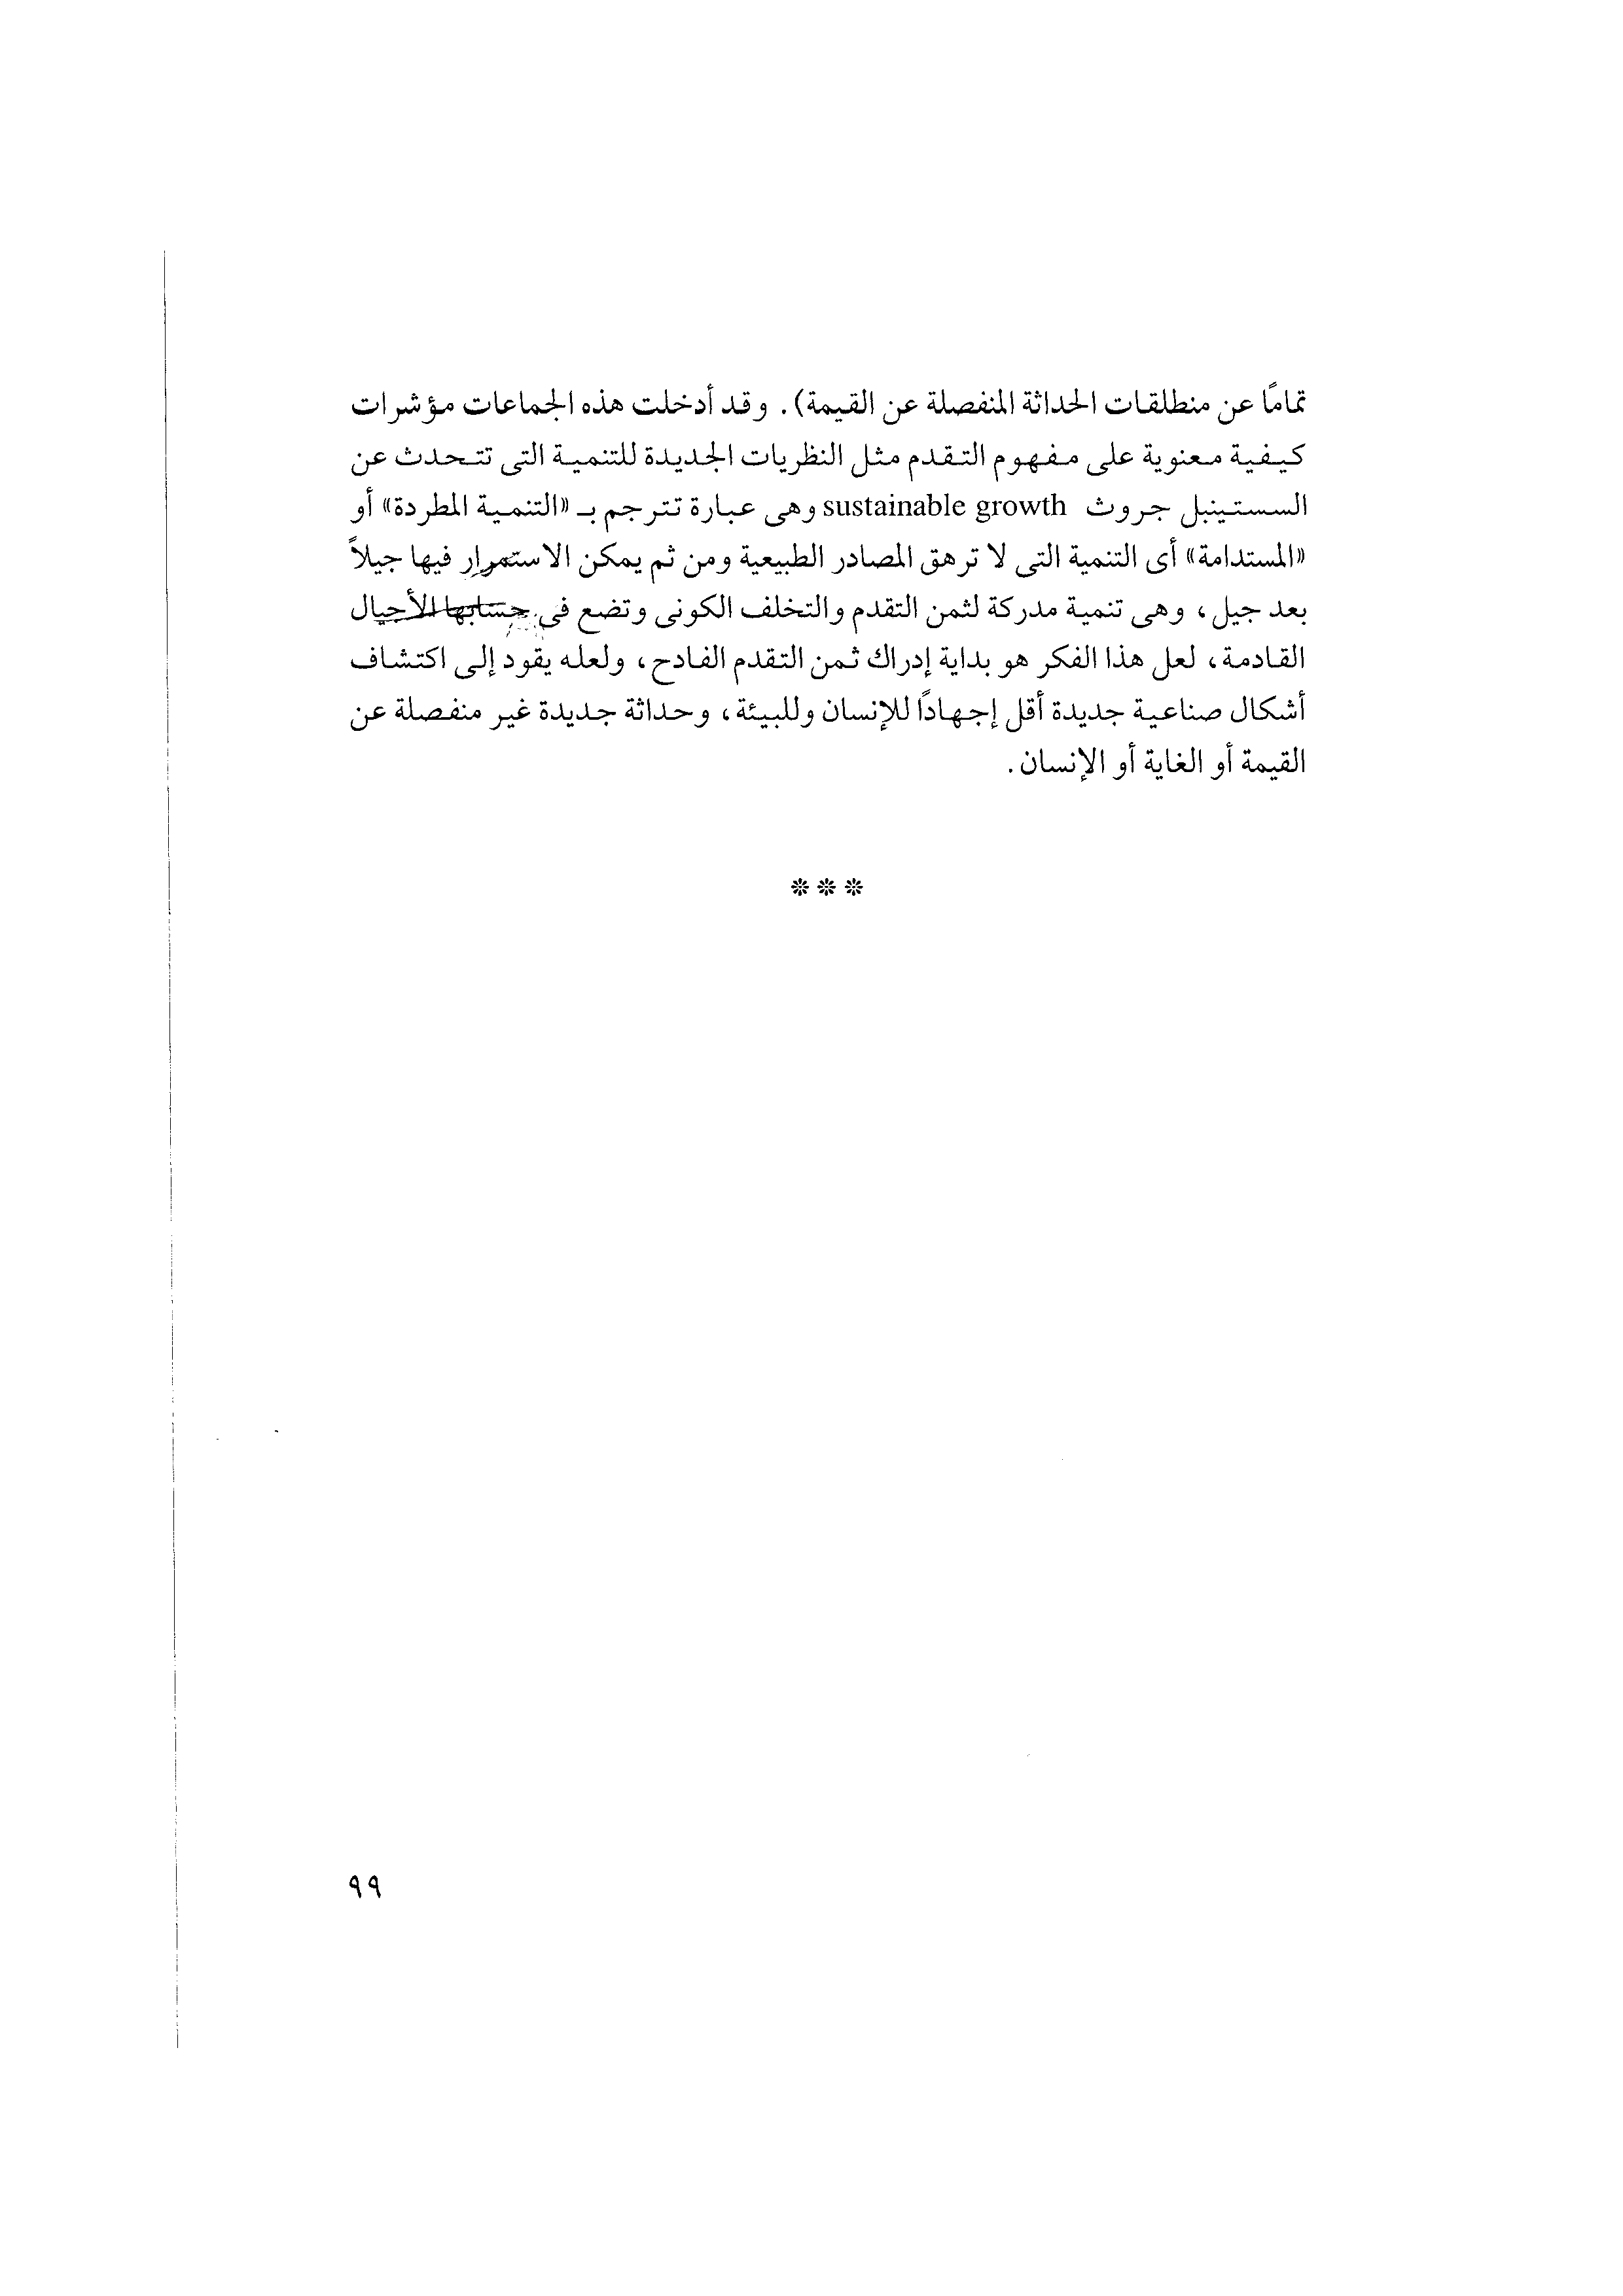 تمامًا عن منطلقات الحداثة المنفصلة عن القيمة). وقد أدخلت هذه الجماعات مؤشرات
كيفية معنوية على مفهوم التقدم مثل النظريات الجديدة للتنمية التى تتحدث عن
السستينبل جروث sustainable growth وهى عبارة تترجم بـ «التنمية المطردة» أو
«المستدامة» أى التنمية التى لا ترهق المصادر الطبيعية ومن ثم يمكن الاستمرار فيها جيلاً
بعد جيل، وهى تنمية مدركة لثمن التقدم والتخلف الكونى وتضع فى حسابها الأجيال
القادمة، لعل هذا الفكر هو بداية إدراك ثمن التقدم الفادح، ولعله يقود إلى اكتشاف
أشكال صناعية جديدة أقل إجهادًا للإنسان وللبيئة، وحداثة جديدة غير منفصلة عن
القيمة أو الغاية أو الإنسان.
***
٩٩